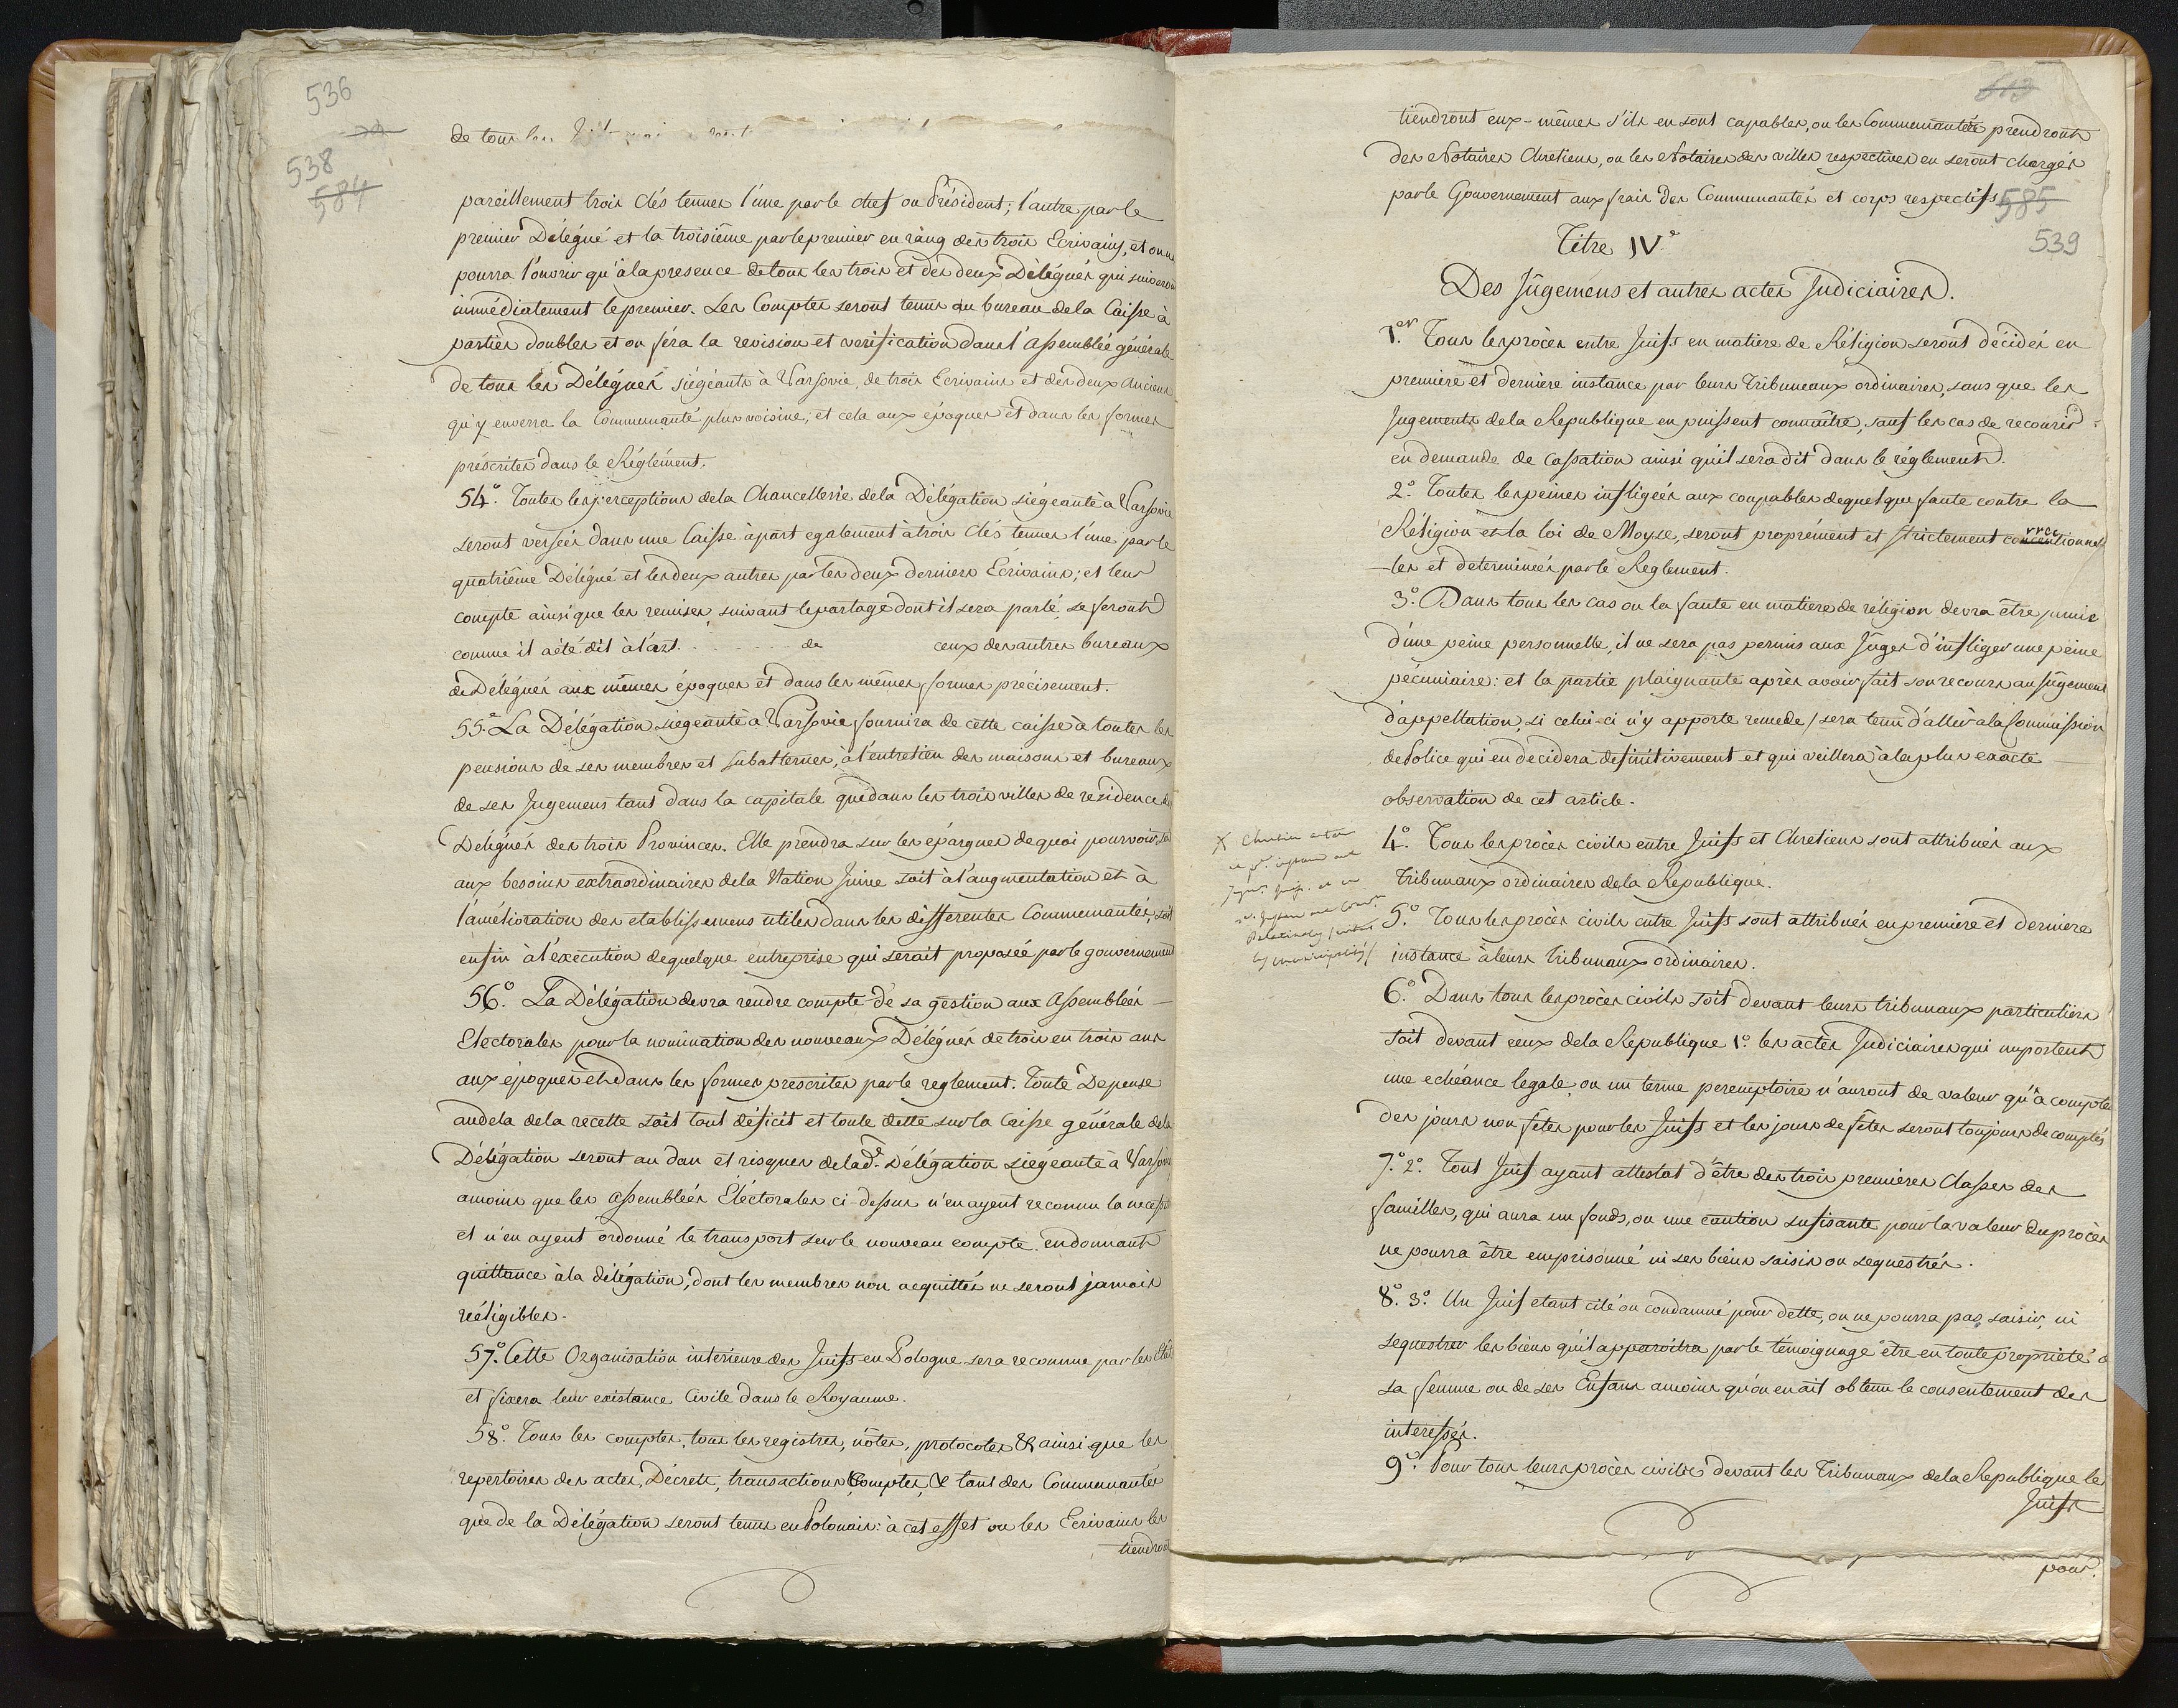 536
538
584
de tous les
pareillement trois clés tenues l'une par le chef ou Président; l'autre par le
premier Délégué et la troisième par le premier en rang des trois Ecrivains, et on ne
pourra l'ouvrir qu'à la presence de tous les trois et des deux Délégués qui suiveront
immédiatement le premier. Les Comptes seront tenus au bureau de la Caisse à
parties doubles et on féra la revision et verification dans l'Assemblée générale
de tous les Délégués siégeants à Varsovie, de trois Ecrivains et des deux anciens
qu'y enverra la Communauté plus voisine; et cela aux époques et dans les formes
préscrites dans le Réglément.
54°. Toutes les perceptions de la Chancellerie de la Délégation siégeante à Varsovie
seront versées dans une Caisse à part egalement à trois clés tenues l'une par le
quatrième Délégué et les deux autres par les deux derniers Ecrivains; et leur
compte ainsi que les remises, suivant le partage dont il sera parlé, se feront
comme il a été dit à l'art. . . . . . . . de ceux des autres bureaux
de Délégués aux mêmes époques et dans les mêmes formes précisement.
55°. La Délégation siegeante à Varsovie fournira de cette caisse à toutes les
pensions de ses membres et subalternes, à l'entretien des maisons et bureaux
de ses Jugemens tant dans la capitale que dans les trois villes de residence de
Délégués des trois Provinces. Elle prendra sur les épargnes de quoi pourvoir soit
aux besoins extraordinaires de la Nation Juive soit à l'augmentation et à
l'amélioration des etablissemens utiles dans les differentes Communautés, soit
enfin à l'execution de quelque entreprise qui serait proposée par le gouvernement
56°. La Délégation devra rendre compte de sa gestion aux Assemblées
Electorales pour la nomination des nouveaux Délégués de trois en trois ans
aux époques et dans les formes prescrites par le reglement. Toute Depense
audela de la recette soit tout déficit et toute dette sur la Caisse générale de la
Délégation seront au dan et risques de la de. Délégation siégeante à Varsovie
amoins que les Assemblées Eléctorales ci-dessus n'en ayent reconnu la necessité
et n'en ayent ordonné le transport sur le nouveau compte en donnant
quittance à la délégation, dont les membres non acquittés ne seront jamais
rééligibles.
57°. Cette Organisation intérieure des Juifs en Pologne sera reconnue par les Etats
et fixera leur existance Civile dans le Royaume.
58°. Tous les comptes, tous les registres, nôtes, protocoles & ainsi que les
repertoires des actes, Décrets, transactions, Comptes, & tant des Communautés
que de la Délégation seront tenus en Polonais: à cet effet ou les Ecrivains les
tiendront
613
tiendront eux-mêmes s'ils en sont capables, ou les Communautés prendront
des Notaires Chretiens, ou les Notaires des villes respectives en seront chargés
par le Gouvernement aux frais des Communautés et corps respectifs
585
539
Titre IV.e
Des Jugemens et autres actes Judiciaires.
1.er Tous les procès entre Juifs en matiere de Réligion seront décidés en
première et derniere instance par leurs Tribuneaux ordinaires, sans que les
Jugements de la Republique en puissent connaître, sauf les cas de recourir
en demande de cassation ainsi qu'il sera dit dans le réglement.
2°. Toutes les peines infligées aux coupables de quelque faute contre la
Réligion et la loi de Moyse, seront proprément et strictement correctionnel-
les et determinées par le Reglement.
3°. Dans tous les cas ou la faute en matiere de réligion devra être punie
d'une peine personnelle, il ne sera pas permis aux Juges d'infliger une peine
pécuniaire: et la partie plaignante après avoir fait son recours au Jugement
d'appellation, si celui-ci n'y apporte remede / sera tenu d'aller à la Commission
de Police qui en decidera definitivement et qui veillera à la plus exacte
observation de cet article.
4°. Tous les procès civils entre Juifs et Chretiens sont attribués aux
Tribunaux ordinaires de la Republique.
5°. Tous les procès civils entre Juifs sont attribués en première et derniere
instance à leurs Tribunaux ordinaires.
6°. Dans tous les procès civils soit devant leurs tribunaux particuliers
soit devant ceux de la Republique 1°. les actes Judiciaires qui importent
une echéance legale, ou un terme peremptoire n'auront de valeur qu'à compte
des jours non fêtes pour les Juifs et les jours de fêtes seront toujours decomptés
7°. 2°. Tout Juif ayant attestat d'être des trois premières Classes des
familles, qui aura un fonds, ou une caution sufisante pour la valeur du procès
ne pourra être emprisonné ni ses biens saisis ou sequestrés.
8°. 3°. Un Juif etant cité ou condamné pour dette, on ne pourra pas saisir, ni
sequestrer les biens qu'il apparoitra par le témoignage être en toute proprieté à
sa femme ou de ses Enfans amoins qu'on en ait obtenu le consentement des
interessés.
9°. Pour tous leurs procès civiles devant les Tribunaux de la Republique les
Juifs
pour